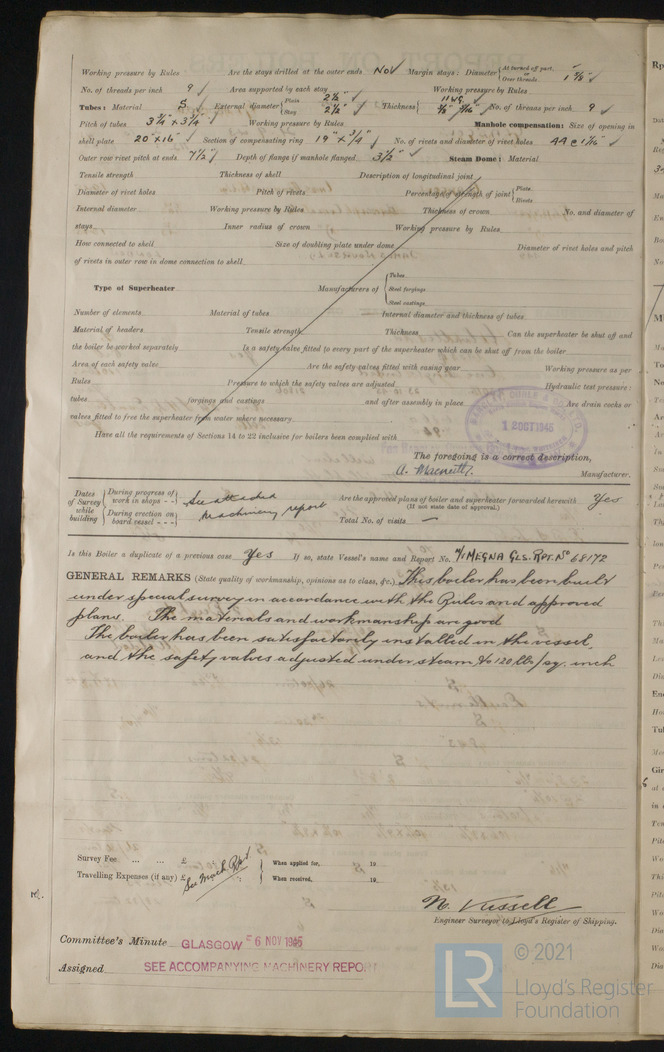 Working pressure by Rules Are the stays drilled at the outer ends NoV Margin stays: Diameter { At turned off part, or Over threads 1 5/8" ✓
No. of threads per inch 9 ✓ Area supported by each stay Working pressure by Rules
Tubes: Material S ✓ External diameter { Plain 2½" Stay 2½" ✓ Thickness { 11 WG ✓ No. of threads per inch 9 ✓
Pitch of tubes 3¾" x 3¾" ✓ Working pressure by Rules Manhole compensation: Size of opening in
shell plate 20" x 16" ✓ Section of compensating ring 19" x ¾" ✓ No. of rivets and diameter of rivet holes 44 @ 1 1/16" ✓
Outer row rivet pitch at ends 7½" ✓ Depth of flange if manhole flanged 3½" ✓ Steam Dome: Material
Tensile strength Thickness of shell Description of longitudinal joint
Diameter of rivet holes Pitch of rivets Percentage of strength of joint { Plate Rivets
Internal diameter Working pressure by Rules Thickness of crown No. and diameter of
stays Inner radius of crown Working pressure by Rules
How connected to shell Size of doubling plate under dome Diameter of rivet holes and pitch
of rivets in outer row in dome connection to shell
Type of Superheater Manufacturers of { Tubes Steel forgings Steel castings
Number of elements Material of tubes Internal diameter and thickness of tubes
Material of headers Tensile strength Thickness Can the superheater be shut off and
the boiler be worked separately Is a safety valve fitted to every part of the superheater which can be shut off from the boiler
Area of each safety valve Are the safety valves fitted with easing gear Working pressure as per
Rules Pressure to which the safety valves are adjusted Hydraulic test pressure:
tubes forgings and castings and after assembly in place Are drain cocks or
valves fitted to free the superheater from water where necessary
Have all the requirements of Sections 14 to 22 inclusive for boilers been complied with
1 2 OCT 1945
The foregoing is a correct description,
Manufacturer.
Dates of Survey while building { During progress of work in shops - - During erection on board vessel - - - } See attached Machinery report
Are the approved plans of boiler and superheater forwarded herewith Yes
(If not state date of approval.)
Total No. of visits —
Is this Boiler a duplicate of a previous case Yes If so, state Vessel's name and Report No. M/V MEGNA GLS. RPT. No 68172
GENERAL REMARKS (State quality of workmanship, opinions as to class, &c.) This boiler has been built
under special survey in accordance with the Rules and approved
plans. The materials and workmanship are good
The boiler has been satisfactorily installed in the vessel,
and the safety valves adjusted under steam to 120 lbs/sq. inch
Survey Fee ... ... £ : : When applied for, 19
Travelling Expenses (if any) £ : : When received, 19
See Mach. Rpt
N. Russell
Engineer Surveyor to Lloyd's Register of Shipping.
Committee's Minute GLASGOW 6 NOV 1945
Assigned SEE ACCOMPANYING MACHINERY REPORT
LR © 2021
Lloyd's Register
Foundation